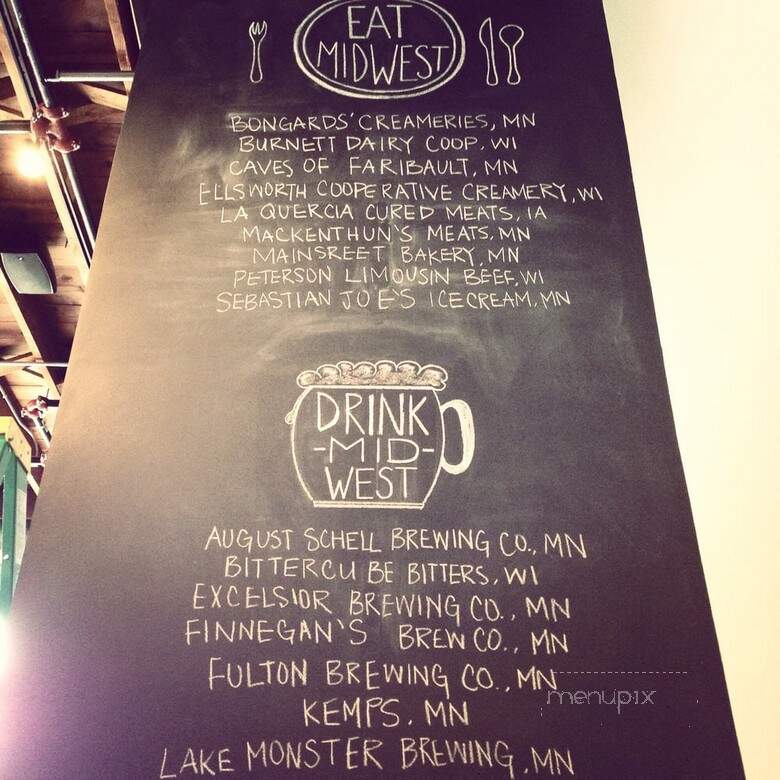 EAT
MIDWEST
BONGARDS' CREAMERIES, MN
BURNETT DAIRY COOP, WI
CAVES OF FARIBAULT, MN
ELLSWORTH COOPERATIVE CREAMERY, WI
LA QUERCIA CURED MEATS, IA
MACKENTHUN'S MEATS, MN
MAINSREET BAKERY, MN
PETERSON LIMOUSIN BEEF, WI
SEBASTIAN JOE'S ICE CREAM, MN
DRINK
-MID-
WEST
AUGUST SCHELL BREWING CO., MN
BITTERCUBE BITTERS, WI
EXCELSIOR BREWING CO., MN
FINNEGAN'S BREW CO., MN
FULTON BREWING CO., MN
menupix
KEMPS, MN
LAKE MONSTER BREWING, MN